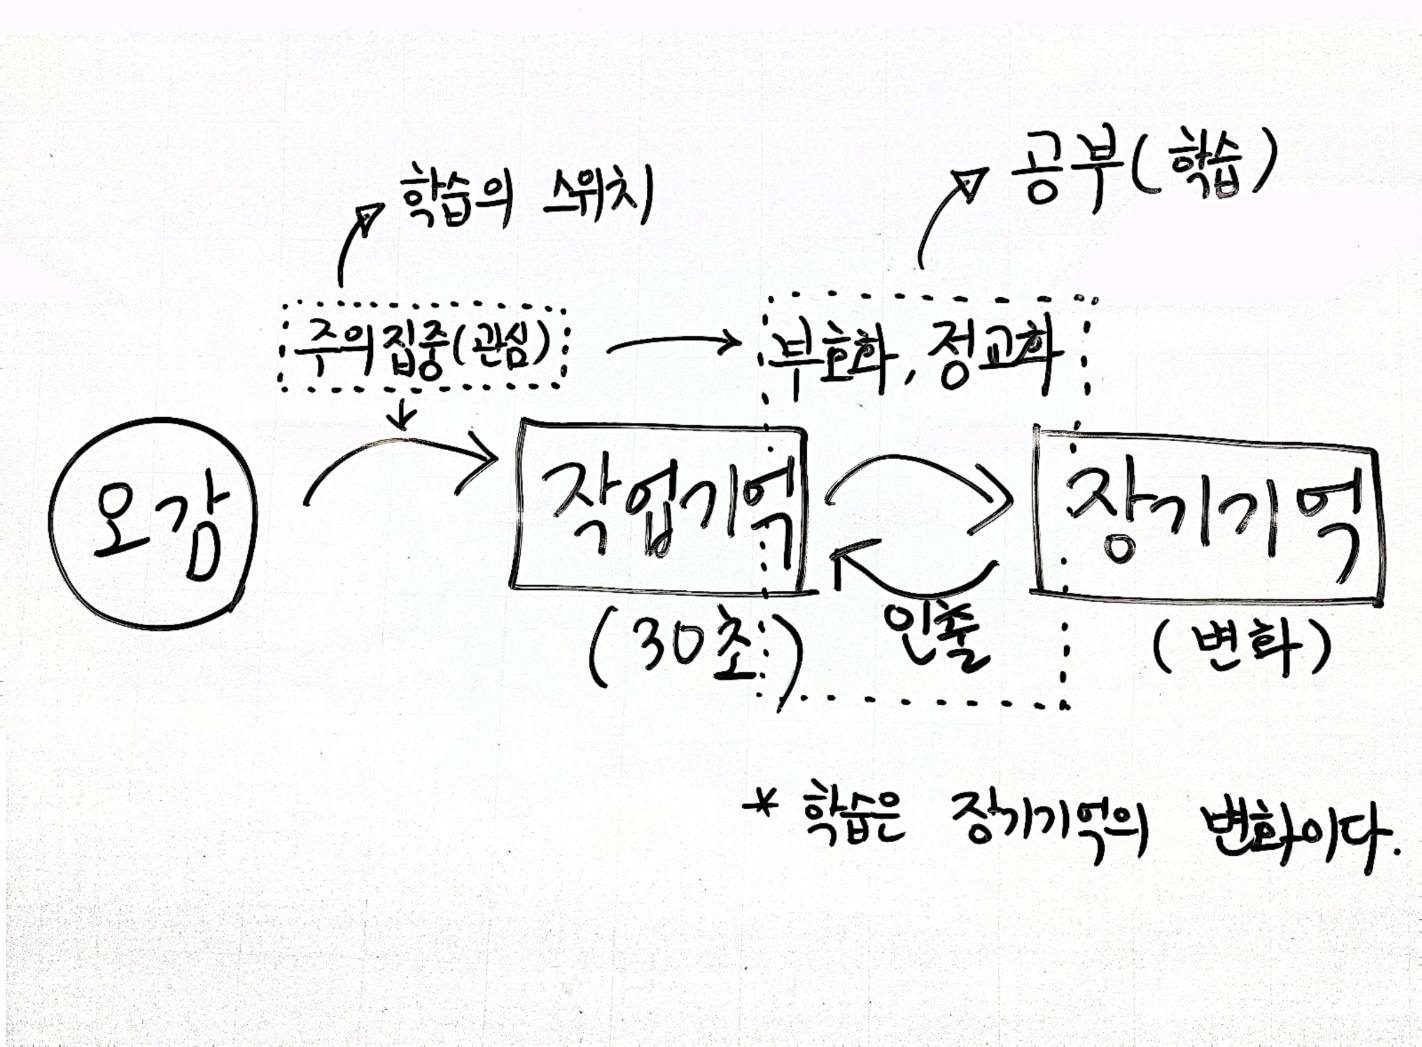 학습의 스위치
공부(학습)
주의집중(관심)
부호화, 정교화
오감
작업기억
장기기억
(30초)
인출
(변화)
* 학습은 장기기억의 변화이다.